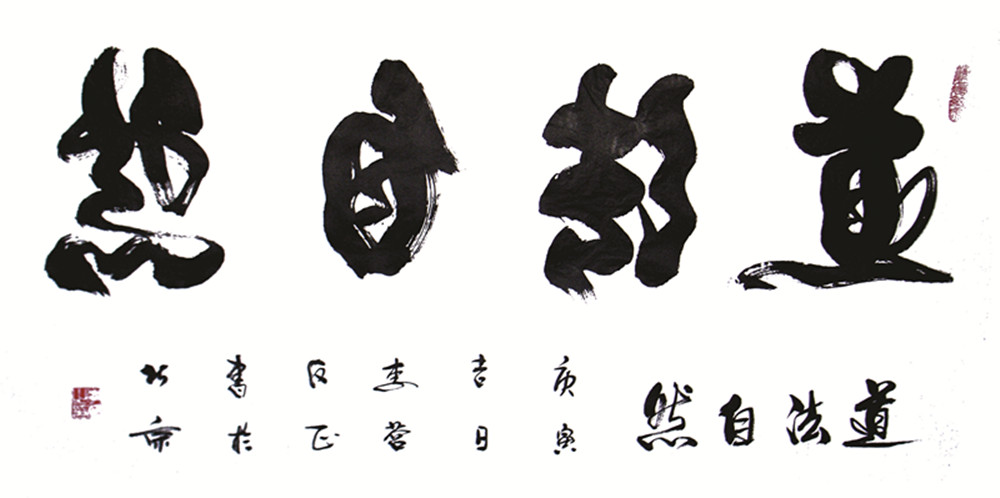 道法自然
道法自然
庚寅
吉日
李
正
書於
北京